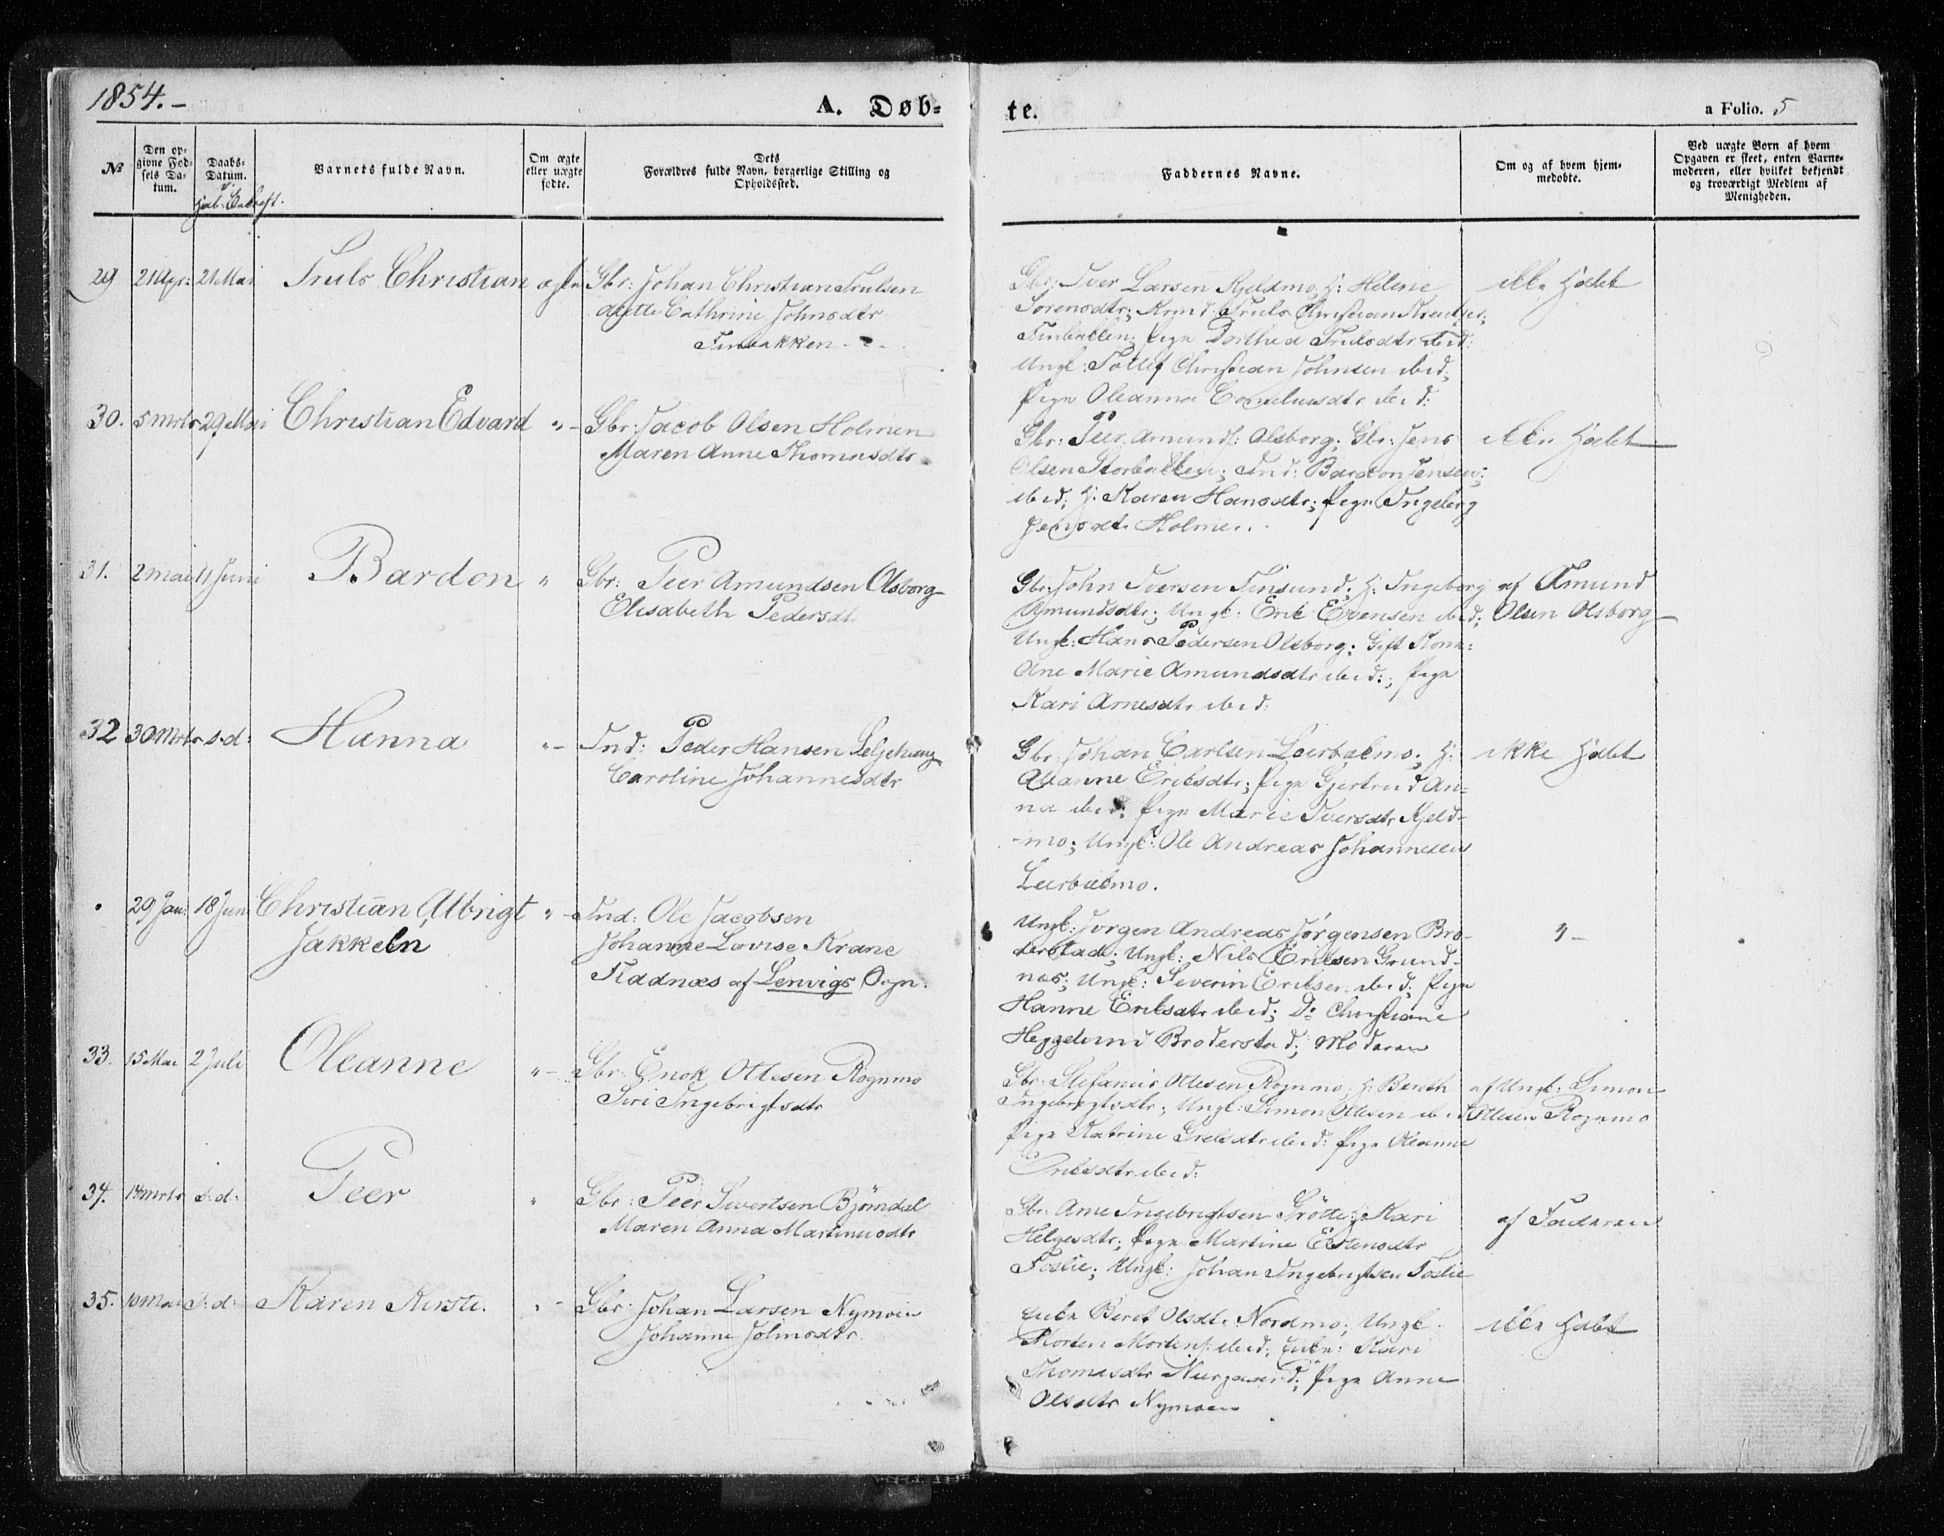 1854.-
A. Døb-
te.
a Folio. 5
№
Den op-
givne Fød-
sels Da-
tum.
Daabs-
Datum.
Varnets fulde Navn.
Om ægte
eller uægte
fødte.
Dets
Forældres fulde Navn, borgerlige Stilling og
Opholdssted.
Faddernes Navne.
Om og af hvem hjem-
medøbte.
Ved uægte Børn af hvem
Opgaven er skeet, enten Barne-
moderen, eller hvilket bekjendt
og troværdigt Medlem af
Menigheden.
29 21 Apr: 21 Mai Truls Christian ægte
Gbr: Johan Christian Trulsen
Cathrine Johnsdtr
Finbakken
Gbr: Iver Larsen Kjeldmo, H: Helene
Sørensdtr; Truls Christian
Finbakken; Pige Dorthea Trulsdtr ibid:
Ungk: Tollef Christian Johnsen ibid;
Pige Oleanna Corneliusdtr ibid:
ikke Hdbt
30. 5 Mrts 29 Mai Christian Edvard "-
Gbr: Jacob Olsen Holmen
Maren Anne Thomasdtr
Gbr: Peer Amunds: Olsborg; Gbr: Jens
Olsen Storbakken; Ind: Bardon Jensen
ibid; H: Karen Hansdtr; Pige Ingeborg
Jensdtr Holmen.
ikke Hdbt
31. 2 Mai 11 Juni Bardon "
Gbr: Peer Amundsen Olsborg
Elisabeth Pedersdt.
Gbr: John Iversen Finsund; H: Ingeborg
Amundsdtr; Ungk: Erik Evensen ibid;
Ungk: Hans Pedersen Olsborg; Gift Kone
Ane Marie Amundsdtr ibid:; Pige
Kari Arnesdtr ibid:
af Amund
Olsen Olsborg
32 30 Mrts s.d: Hanna "-
Ind: Peder Hansen Seljehaug
Caroline Johannesdtr
Gbr: Johan Carlsen Leerbakmo; H:
Oleanne Eriksdtr; Pige Gjertrud An-
na ibid: Pige Marie Iversdtr Kjeld-
mo; Ungk: Ole Andreas Johannesen
Leerbakmo.
ikke Hdbt
29 Jan: 18 Jun Christian Albrigt "-
Jakkeln
Ind: Ole Jacobsen
Johanne Lovise Krane
Kladnæs af Lenvigs Sogn.
Ungk: Jørgen Andreas Jørgensen Bro-
derstad; Ungk: Nils Eriksen Grund-
næs; Ungk: Severin Eriksen ibid; Pige
Hanne Eriksdtr ibid; Do Christiane
Heggelund Broderstad; Moderen
"-
33. 15 Mai 2 Juli Oleanne "-
Gbr: Enok Ottesen Rognmo
Siri Ingebrigtsdtr
Gbr: Stefanus Ottesen Rognmo; H: Bereth
Ingebrigtsdtr; Ungk: Simon Ottesen ibid
Pige Katrine ibid: Pige Oleanne
ibid:
af Ungk: Simon
Ottesen Rognmo
34. 14 Mrts s:d: Peer "
Gbr: Peer Sivertsen Bjørndal
Maren Anna Martinusdtr
Gbr: Arne Ingebrigtsen Grøtte; Kari
Helgesdtr; Pige Martine Estensdtr
Foslie; Ungk: Johan Ingebrigtsen Foslie
af Faderen
35. 10 Mai s:d: Karen Kirste. "-
Gbr: Johan Larsen Nymoen
Johanne Johnsdtr
Enke Berit Olsdtr Nordmo; Ungk
Morten Mortens: ibid; Enke: Kari
Thomasdtr Nergaard; Pige Anne
Olsdtr Nymoen
ikke Hdbt